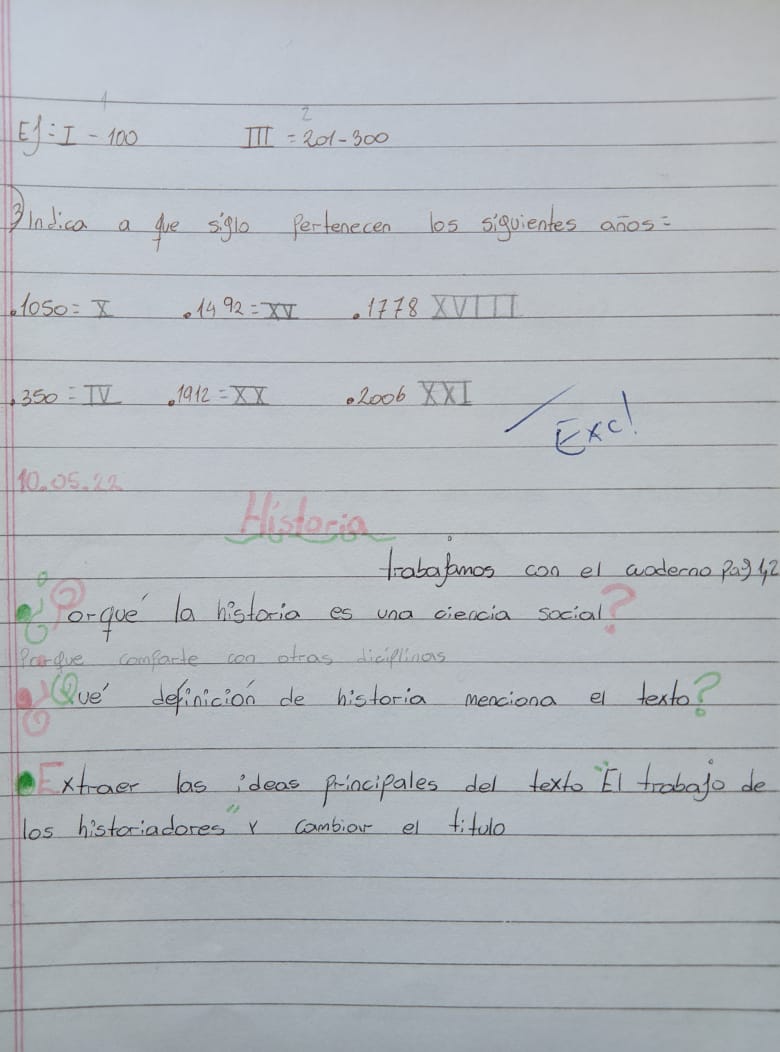 1 2
Ej: I - 100 III = 201-300
3) Indica a que siglo pertenecen los siguientes años:
.1050 = X .1492 = XV .1778 XVIII
.350 = IV .1912 = XX .2006 XXI
Exc!
10.05.22
Historia
trabajamos con el cuaderno pag 1,2
¿Porqué la historia es una ciencia social?
Porque comparte con otras diciplinas
¿Qué definición de historia menciona el texto?
Extraer las ideas principales del texto "El trabajo de
los historiadores" y cambiar el titulo